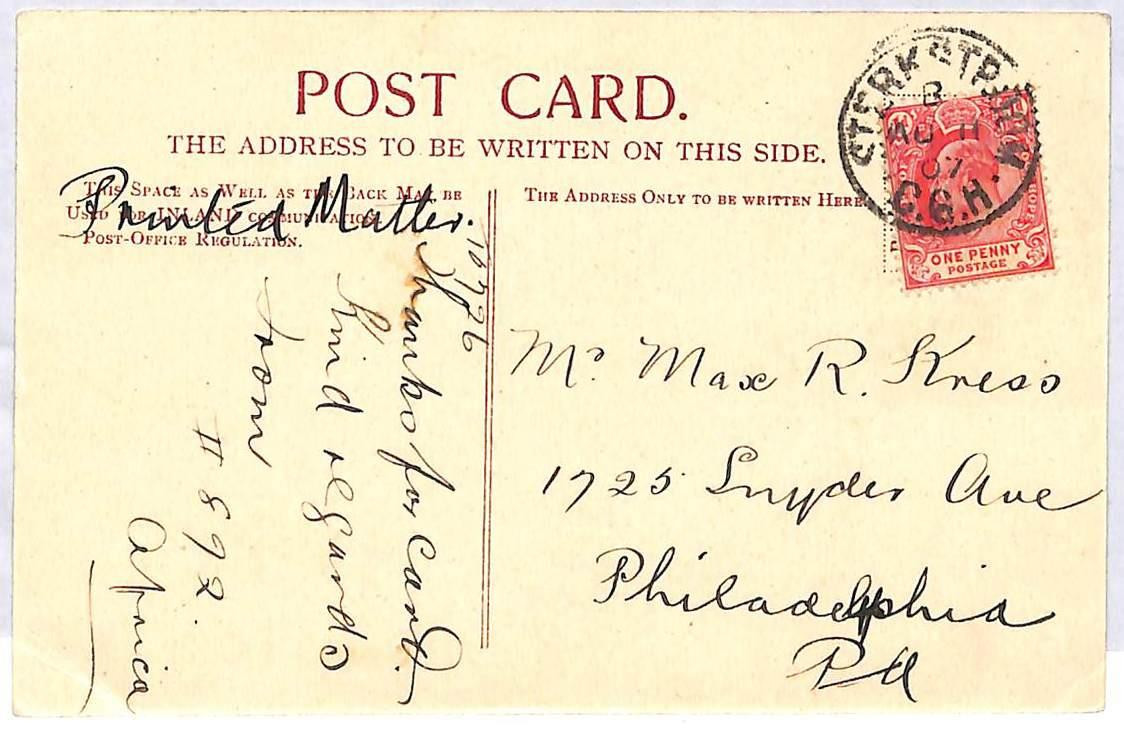 POST CARD.
THE ADDRESS TO BE WRITTEN ON THIS SIDE.
THIS SPACE AS WELL AS THE BACK MAY BE
USED FOR INLAND COMMUNICATION
POST-OFFICE REGULATION.
Printed Matter.
THE ADDRESS ONLY TO BE WRITTEN HERE
STERKSTROOM
B
AU 11
07
C.G.H.
ONE PENNY
POSTAGE
10726
Thanks for card.
Kind regards
from
# 892.
Africa
Mr Max R. Kress
1725 Snyder Ave
Philadelphia
Pa